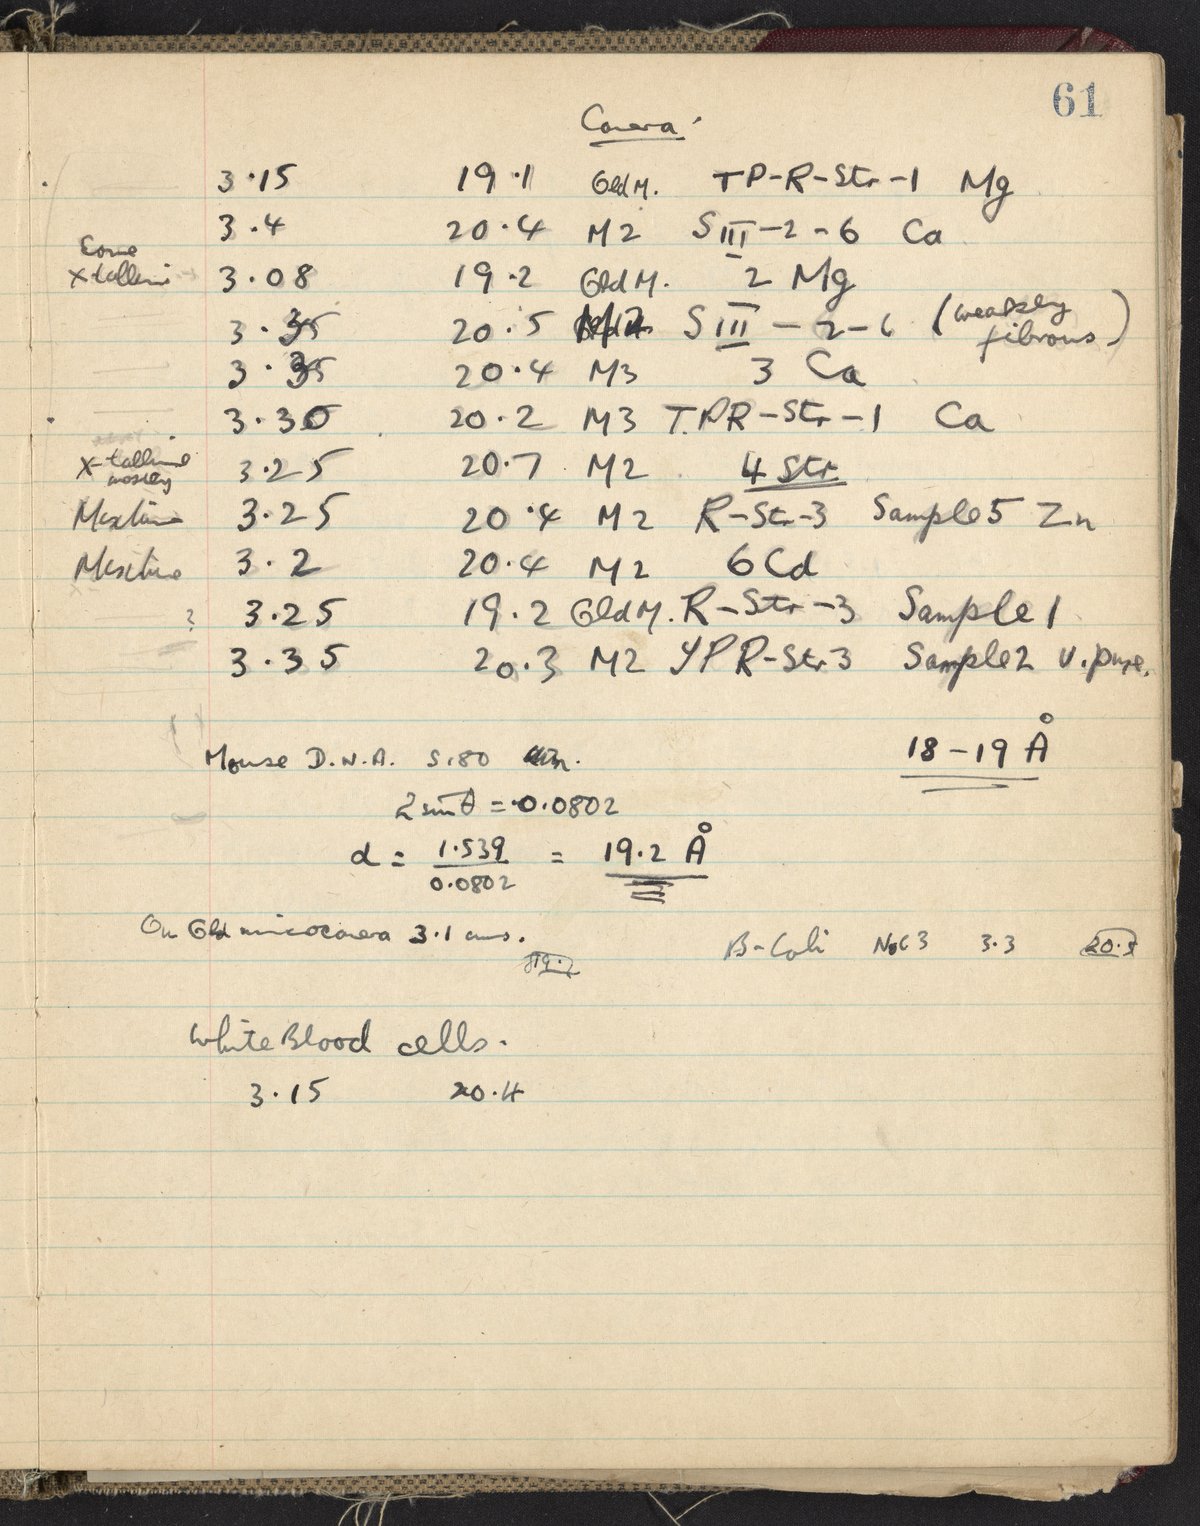 61
Camera
3.15 19.1 Gld M. TP-R-Str-1 Mg
3.4 20.4 M2 S III-2-6 Ca
Some X-talline 3.08 19.2 Gld M. 2 Mg
3.35 20.5 M2 S III-2-6 (weakly fibrous)
3.35 20.4 M3 3 Ca
3.30 20.2 M3 T.PR-Str-1 Ca
X-talline mostly 3.25 20.7 M2 4 Str
Mixture 3.25 20.4 M2 R-Str-3 Sample 5 Zn
Mixture 3.2 20.4 M2 6 Cd
? 3.25 19.2 Gld M. R-Str-3 Sample 1
3.35 20.3 M2 YPR-Str3 Sample 2 v. pure.
18-19 Å
Mouse D.N.A. S.180
2 sin θ = 0.0802
d = 1.539 / 0.0802 = 19.2 Å
On Gld microcamera 3.1 cms.
B-Coli 3.3
White Blood cells.
3.15 20.4